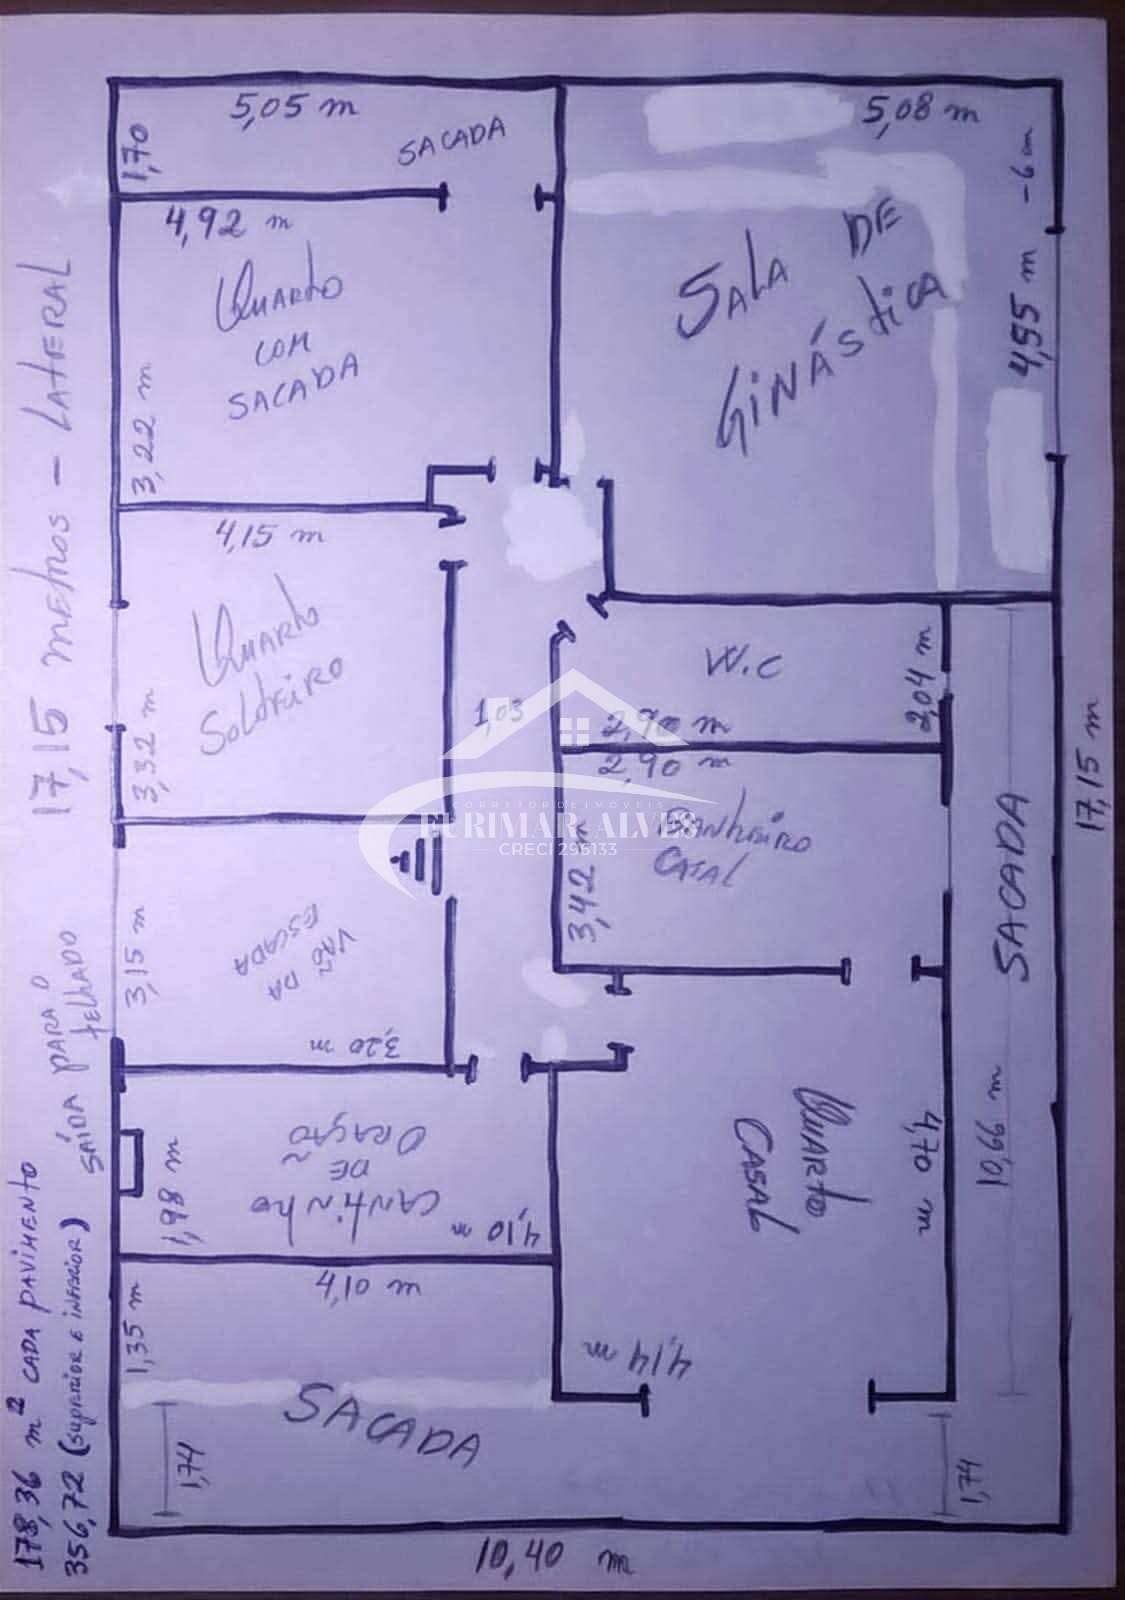 5,05 m
5,08 m
1,70
SACADA
- 6 cm
4,92 m
4,95 m
QUARTO
COM
SACADA
SALA DE
GINÁSTICA
3,22 m
17,15 METROS - LATERAL
4,15 m
QUARTO
SOLTEIRO
W.C
2,04 m
1,03
2,90 m
2,90 m
3,32 m
17,15 m
CORRETOR DE IMÓVEIS
EURIMAR ALVES
CRECI 296133
BANHEIRO
CASAL
3,42 m
SACADA
VÃO DA
ESCADA
3,15 m
3,20 m
SAÍDA PARA O
TELHADO
CANTINHO
DE
ORAÇÃO
1,98 m
4,10 m
QUARTO
CASAL
4,70 m
10,66 m
4,10 m
1,35 m
4,14 m
SACADA
1,74
1,74
10,40 m
178,36 m² CADA PAVIMENTO
356,72 (SUPERIOR E INFERIOR)